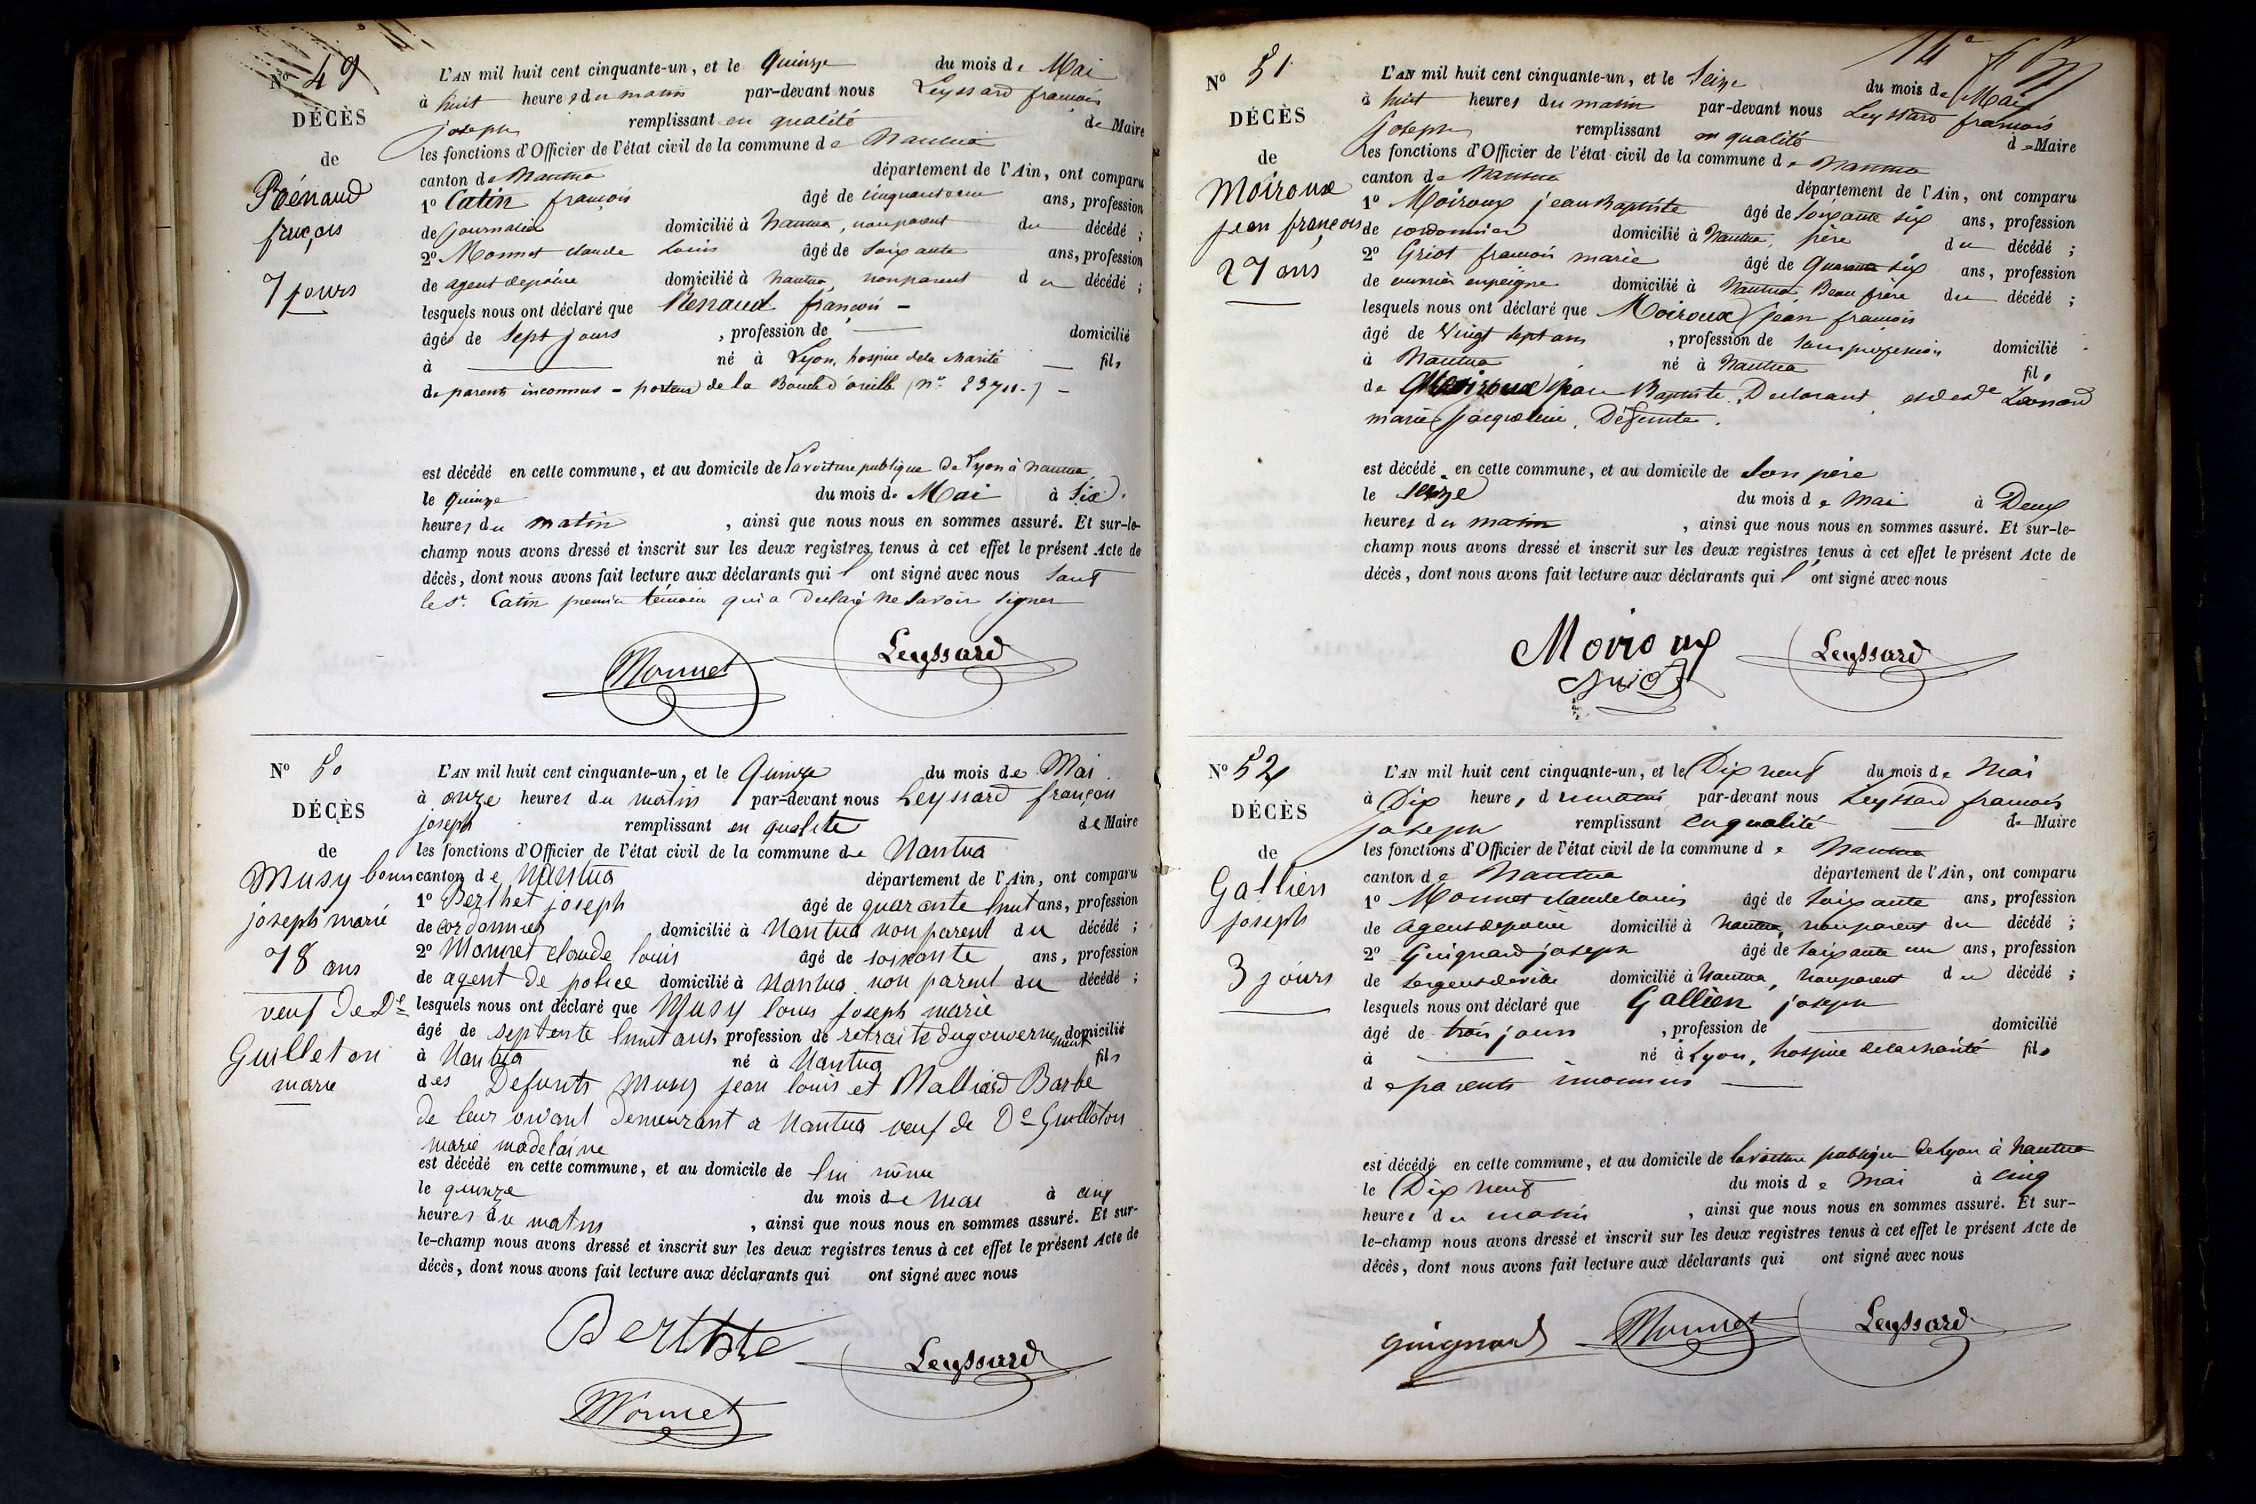 No 49
DÉCÈS
de
Rénaud
françois
7 jours
L'AN mil huit cent cinquante-un, et le quinze du mois de Mai
à huit heures du matin par-devant nous Leyssard françois
joseph remplissant en qualité de Maire
les fonctions d'Officier de l'état civil de la commune de Nantua
canton de Nantua département de l'Ain, ont comparu
1o Catin françois âgé de ans, profession
de journalier domicilié à Nantua, non parent du décédé ;
2o Monnet claude louis âgé de soixante ans, profession
de agent de police domicilié à Nantua, non parent du décédé ;
lesquels nous ont déclaré que Renaud françois -
âgé de sept jours , profession de — domicilié
à — né à Lyon, hospice de la charité — fils
de parents inconnus - porteur de la Boucle d'oreille (No ) -
est décédé en cette commune, et au domicile de la voiture publique de Lyon à Nantua
le quinze du mois de Mai à Six
heures du matin , ainsi que nous nous en sommes assuré. Et sur-le-
champ nous avons dressé et inscrit sur les deux registres tenus à cet effet le présent Acte de
décès, dont nous avons fait lecture aux déclarants qui ont signé avec nous sauf
le Sr. Catin premier témoin qui a déclaré ne savoir signer
Monnet Leyssard
No 50
DÉCÈS
de
Musy louis
joseph marie
78 ans
veuf de De
Guilleton
marie
L'AN mil huit cent cinquante-un, et le Quinze du mois de Mai
à onze heures du matin par-devant nous Leyssard françois
joseph remplissant en qualité de Maire
les fonctions d'Officier de l'état civil de la commune de Nantua
canton de Nantua département de l'Ain, ont comparu
1o Berthet joseph âgé de quarante huit ans, profession
de cordonnier domicilié à Nantua non parent du décédé ;
2o Monnet claude louis âgé de soixante ans, profession
de agent de police domicilié à Nantua non parent du décédé ;
lesquels nous ont déclaré que Musy louis joseph marie
âgé de septente huit ans, profession de retraite du gouvernement domicilié
à Nantua né à Nantua fils
des Defunts Musy jean louis et Malliard Barbe
de leur vivant demeurant a Nantua veuf de De Guilleton
marie madelaine
est décédé en cette commune, et au domicile de lui même
le quinze du mois de mai à cinq
heures du matin , ainsi que nous nous en sommes assuré. Et sur-
le-champ nous avons dressé et inscrit sur les deux registres tenus à cet effet le présent Acte de
décès, dont nous avons fait lecture aux déclarants qui ont signé avec nous
Leyssard
Monnet
No 51
DÉCÈS
de
Moiroux
jean françois
27 ans
L'AN mil huit cent cinquante-un, et le Seize du mois de Mai
à huit heures du matin par-devant nous Leyssard françois
joseph remplissant en qualité de Maire
les fonctions d'Officier de l'état civil de la commune de Nantua
canton de Nantua département de l'Ain, ont comparu
1o Moiroux jean Baptiste âgé de soixante six ans, profession
de cordonnier domicilié à Nantua, père du décédé ;
2o Griot françois marie âgé de quarante six ans, profession
de ouvrier en peigne domicilié à Nantua Beau frère du décédé ;
lesquels nous ont déclaré que Moiroux jean françois
âgé de Vingt sept ans , profession de sans profession domicilié
à Nantua né à Nantua fils
de Moiroux jean Baptiste, Déclarant, et de Leonard
marie jacqueline, Défunte.
est décédé en cette commune, et au domicile de son père
le seize du mois de Mai à Deux
heures du matin , ainsi que nous nous en sommes assuré. Et sur-le-
champ nous avons dressé et inscrit sur les deux registres tenus à cet effet le présent Acte de
décès, dont nous avons fait lecture aux déclarants qui ont signé avec nous
Leyssard
No 52
DÉCÈS
de
Gallien
joseph
3 jours
L'AN mil huit cent cinquante-un, et le Dix neuf du mois de Mai
à Dix heures du matin par-devant nous Leyssard françois
joseph remplissant en qualité de Maire
les fonctions d'Officier de l'état civil de la commune de Nantua
canton de Nantua département de l'Ain, ont comparu
1o Monnet claude louis âgé de soixante ans, profession
de agent de police domicilié à Nantua, non parent du décédé ;
2o Guignard joseph âgé de soixante un ans, profession
de sergent de ville domicilié à Nantua, non parent du décédé ;
lesquels nous ont déclaré que Gallien joseph
âgé de trois jours , profession de — domicilié
à — né à Lyon, hospice de la charité fils
de parents inconnus —
est décédé en cette commune, et au domicile de la voiture publique de Lyon à Nantua
le Dix neuf du mois de Mai à cinq
heures du matin , ainsi que nous nous en sommes assuré. Et sur-
le-champ nous avons dressé et inscrit sur les deux registres tenus à cet effet le présent Acte de
décès, dont nous avons fait lecture aux déclarants qui ont signé avec nous
guignard Monnet Leyssard